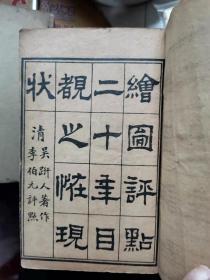 繪圖評點
二十年目
覩之怪現
狀
清 吳趼人著作
李伯元評點